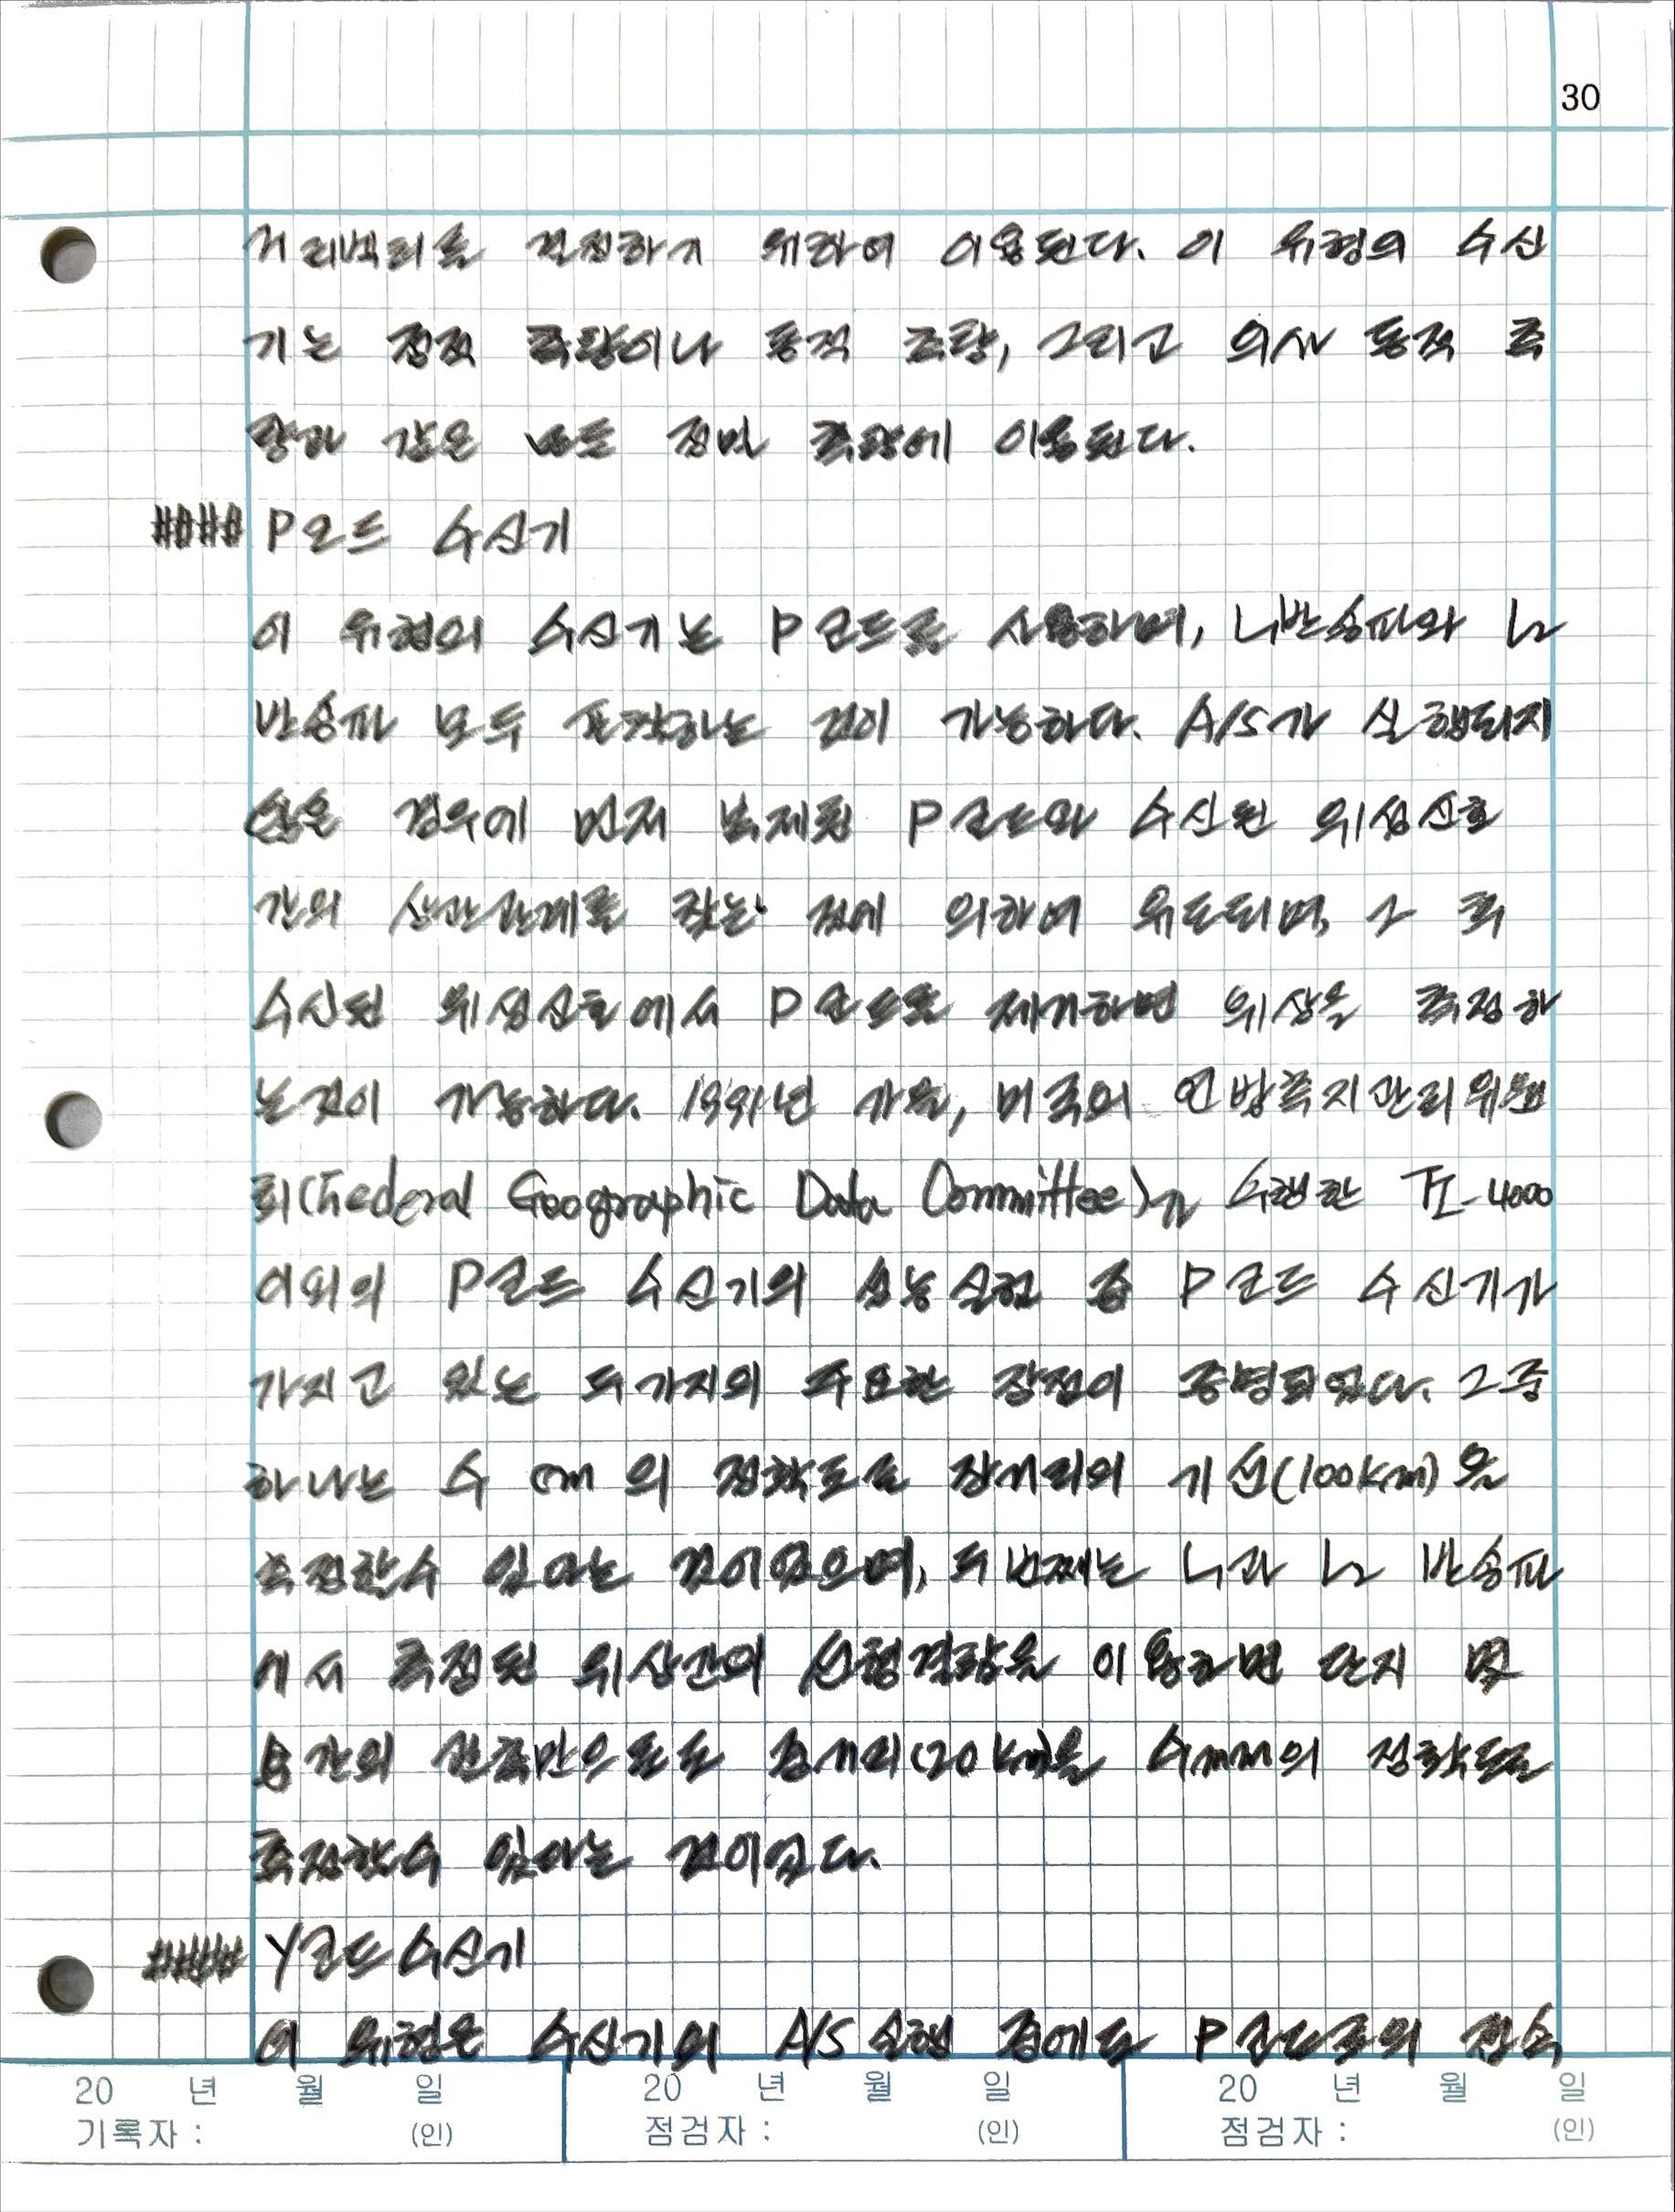 30
거리벡터를 결정하기 위하여 이용된다. 이 유형의 수신
기는 정적 측량이나 동적 측량, 그리고 의사 동적 측
량과 같은 모든 정밀 측량에 이용된다.
#### P코드 수신기
이 유형의 수신기는 P코드를 사용하며, L1반송파와 L2
반송파 모두 포착하는 것이 가능하다. A/S가 실행되지
않은 경우에 먼저 복제된 P코드와 수신된 위성신호
간의 상관관계를 찾는 것에 의하여 유도되며, 그 후
수신된 위성신호에서 P코드를 제거하면 위상을 측정하
는것이 가능하다. 1991년 가을, 미국의 연방측지관리위원
회(Federal Geographic Data Committee)가 수행한 TI-4000
이외의 P코드 수신기의 성능실험 중 P코드 수신기가
가지고 있는 두가지의 주요한 장점이 증명되었다. 그중
하나는 수 cm의 정확도로 장거리의 기선(100km)을
측정할수 있다는 것이었으며, 두번째는 L1과 L2 반송파
에서 측정된 위상간의 선형결합을 이용하면 단지 몇
분간의 관측만으로도 중거리(20km)을 수mm의 정확도로
측정할수 있다는 것이었다.
#### Y코드수신기
이 유형은 수신기의 A/S실행 중에도 P코드로의 접속
20 년 월 일 20 년 월 일 20 년 월 일
기록자 : (인) 점검자 : (인) 점검자 : (인)